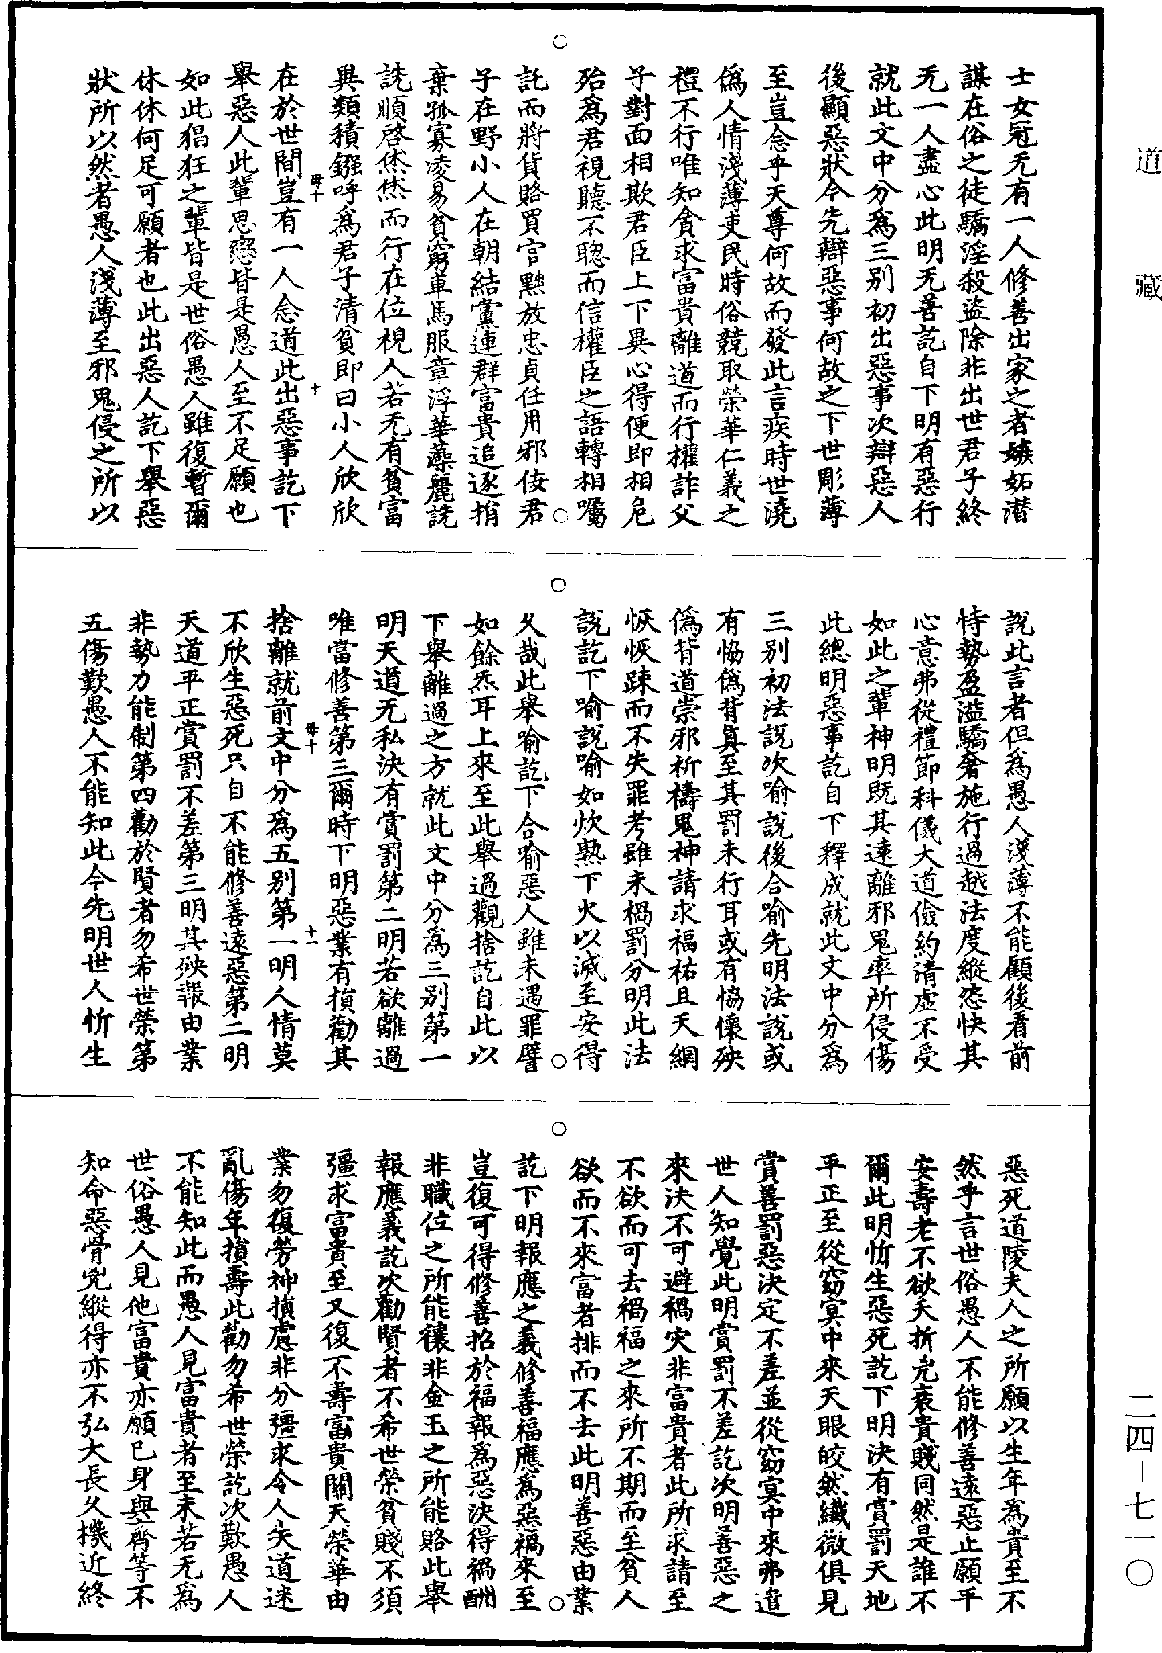 道藏
士女冠无有一人修善出家之者嫉妬潛
謀在俗之徒驕淫殺盜除非出世君子終
无一人盡心此明无善訖自下明有惡行
就此文中分爲三別初出惡事次辯惡人
後顯惡狀今先辯惡事何故之下世彫薄
至豈念乎天尊何故而發此言疾時世澆
僞人情淺薄吏民時俗競取榮華仁義之
禮不行唯知貪求富貴離道而行權詐父
子對面相欺君臣上下異心得便即相危
殆爲君視聽不聰而信權臣之語轉相囑
託而將貨賂買官黜放忠貞任用邪佞君
子在野小人在朝結黨連群富貴追逐捐
棄孤寡凌易貧窮車馬服章浮華藻麗詵
詵順啓烋烋而行在位視人若无有貧富
異類積鏹呼爲君子清貧即曰小人欣欣
在於世間豈有一人念道此出惡事訖下
舉惡人此輩思戀皆是愚人至不足願也
如此猖狂之輩皆是世俗愚人雖復暫爾
休休何足可願者也此出惡人訖下舉惡
狀所以然者愚人淺薄至邪鬼侵之所以
說此言者但爲愚人淺薄不能顧後看前
恃勢盈溢驕奢施行過越法度縱恣快其
心意弗從禮節科儀大道儉約清虛不受
如此之輩神明既其遠離邪鬼率所侵傷
此總明惡事訖自下釋成就此文中分爲
三別初法說次喻說後合喻先明法說或
有恊僞背真至其罰未行耳或有恊懷殃
僞背道崇邪祈禱鬼神請求福祐且天網
恢恢踈而不失罪考雖未禍罰分明此法
說訖下喻說喻如炊熟下火以滅至安得
久哉此舉喻訖下合喻惡人雖未遇罪譬
如餘炁耳上來至此舉過觀捨訖自此以
下舉離過之方就此文中分爲三別第一
明天道无私決有賞罰第二明若欲離過
唯當修善第三爾時下明惡業有損勸其
捨離就前文中分爲五別第一明人情莫
不欣生惡死只自不能修善遠惡第二明
天道平正賞罰不差第三明其殃報由業
非勢力能制第四勸於賢者勿希世榮第
五傷歎愚人不能知此今先明世人忻生
惡死道陵夫人之所願以生年爲貴至不
然乎言世俗愚人不能修善遠惡止願平
安壽老不欲夭折兇衰貴賤同然是誰不
爾此明忻生惡死訖下明決有賞罰天地
平正至從窈冥中來天眼皎然纖微俱見
賞善罰惡決定不差並從窈冥中來弗遣
世人知覺此明賞罰不差訖次明善惡之
來決不可避禍灾非富貴者此所求請至
不欲而可去禍福之來所不期而至貧人
欲而不來富者排而不去此明善惡由業
訖下明報應之義修善福應爲惡禍來至
豈復可得修善招於福報爲惡決得禍酬
非職位之所能禳非金玉之所能賂此舉
報應義訖次勸賢者不希世榮貧賤不須
彊求富貴至又復不壽富貴關天榮華由
業勿復勞神損慮非分彊求令人失道迷
亂傷年損壽此勸勿希世榮訖次歎愚人
不能知此而愚人見富貴者至未若无爲
世俗愚人見他富貴亦願已身與齊等不
知命惡骨兇縱得亦不弘大長久機近終
二四—七一〇